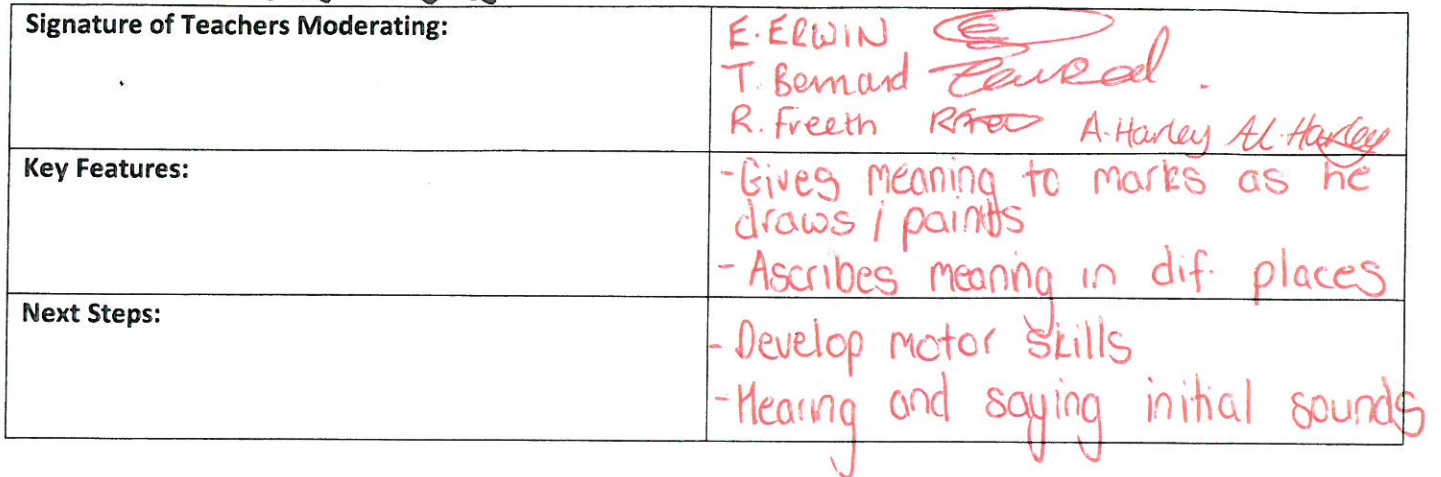 Signature of Teachers Moderating:
E. ERWIN
T. Bernard
R. Freeth A. Harley Al. Harley
Key Features:
- Gives meaning to marks as he
draws / paints
- Ascribes meaning in dif. places
Next Steps:
- Develop motor skills
- Hearing and saying initial sounds